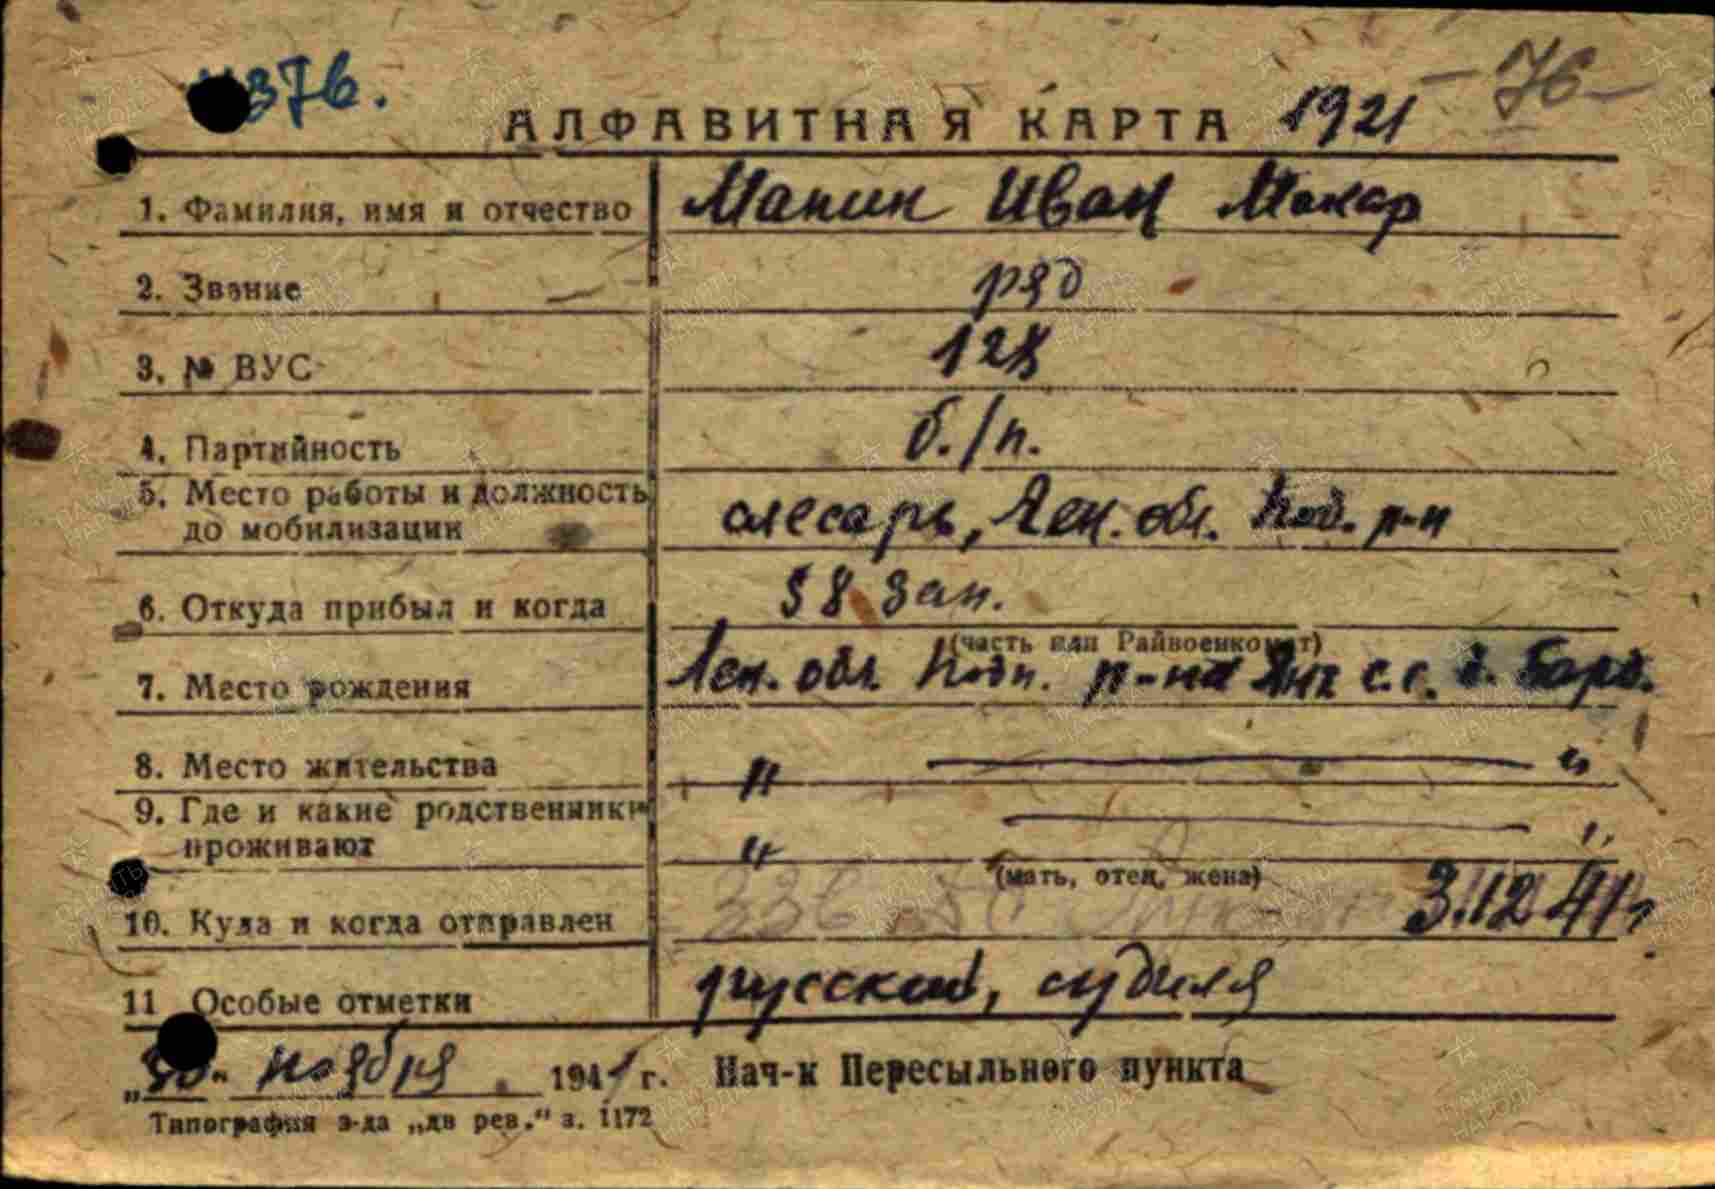 376.
АЛФАВИТНАЯ КАРТА 1921 - 76 -
1. Фамилия, имя и отчество Манин Иван Макар
2. Звание ряд
3. № ВУС 128
4. Партийность б./п.
5. Место работы и должность слесарь, Лен. обл. под. р-н
до мобилизации
6. Откуда прибыл и когда 58 зап.
(часть или Райвоенкомат)
7. Место рождения Лен. обл. Подп. р-на с.с. д.
8. Место жительства " — "
9. Где и какие родственники
проживают " — "
(мать, отец, жена)
10. Куда и когда отправлен 3.12 41г
11 Особые отметки русский,
„30" ноября 1941 г. Нач-к Пересыльного пункта
Типография э-да „дв рев." з. 1172